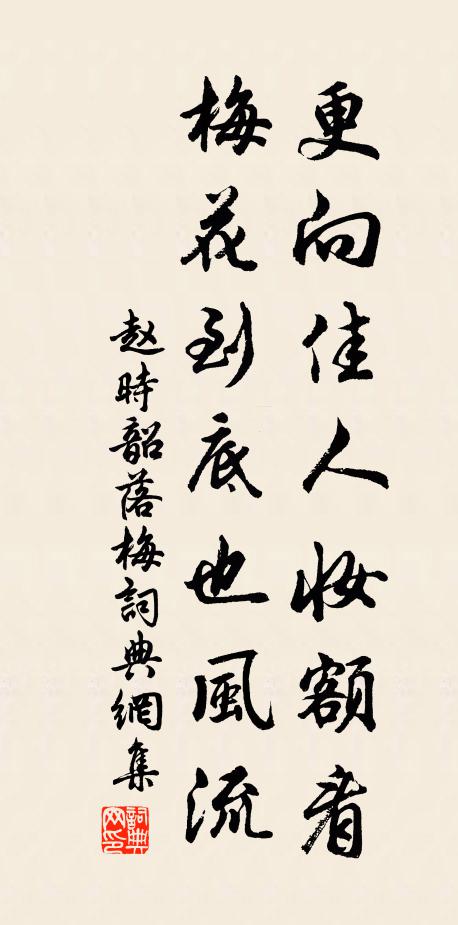 更向佳人妆額看
梅花到底也風流
赵時韶落梅詞典網集
詞典网印